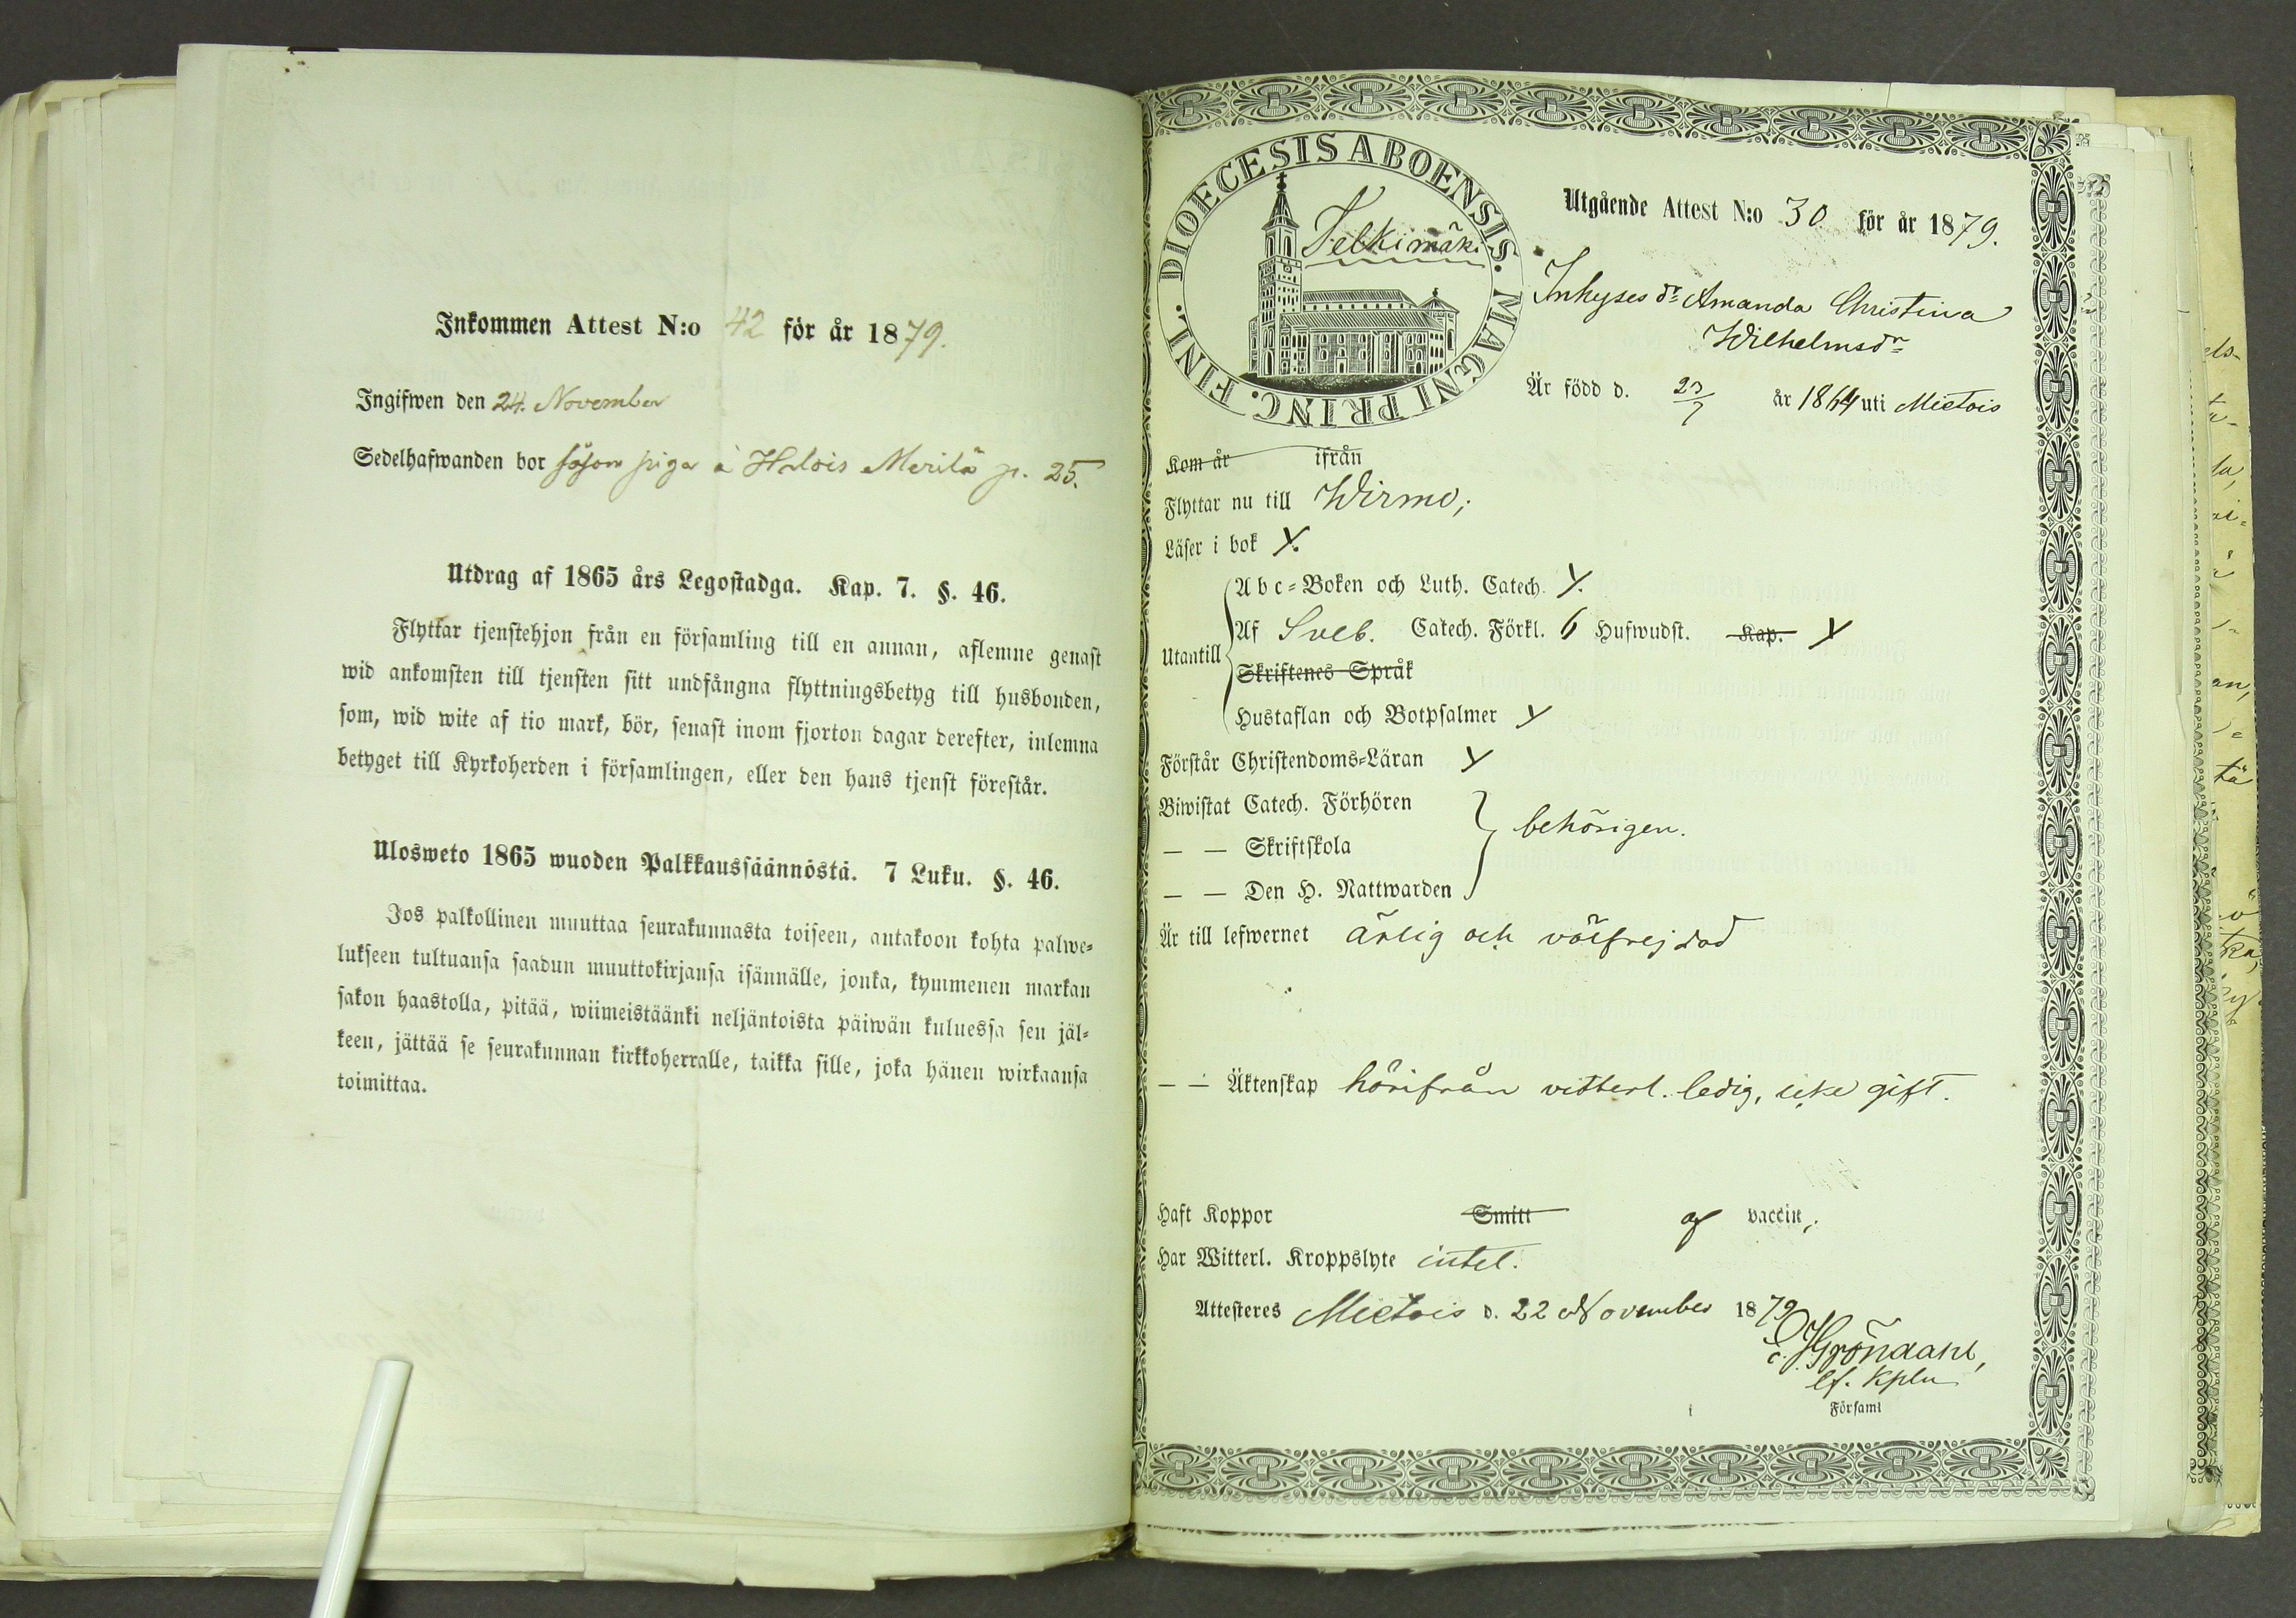 Inkommen Attest N:o 42 för år 1879.
Ingifwen den 24. November
Sedelhafwanden bor såsom piga à Halois Merilä p. 25.
Utdrag af 1865 års Legostadga. Kap. 7. §. 46.
Flyttar tjenstehjon från en församling till en annan, aflemne genast
wid ankomsten till tjensten sitt undfångna flyttningsbetyg till husbonden,
som, wid wite af tio mark, bör, senast inom fjorton dagar derefter, inlemna
betyget till Kyrkoherden i församlingen, eller den hans tjenst förestår.
Ulosweto 1865 wuoden Palkkaussäännöstä. 7 Luku. §. 46.
Jos palkollinen muuttaa seurakunnasta toiseen, antakoon kohta palwe-
lukseen tultuansa saadun muuttokirjansa isännälle, jonka, kymmenen markan
sakon haastolla, pitää, wiimeistäänki neljäntoista päiwän kuluessa sen jäl-
keen, jättää se seurakunnan kirkkoherralle, taikka sille, joka hänen wirkaansa
toimittaa.
DIOECESIS ABOENSIS. MAGNI PRINC. FINL.
Telkimäki
Utgående Attest N:o 30 för år 1879.
Inhyses dr Amanda Christina
Wilhelmsdr
Är född d. 23/7 år 1864 uti Mietois
Kom år ifrån
Flyttar nu till Wirmo;
Läser i bok Y.
Utantill
Abc-Boken och Luth. Catech. Y.
Af Sveb. Catech. Förkl. 6 Hufwudst. Kap. Y
Skriftenes Språk
Hustaflan och Botpsalmer Y
Förstår Christendoms-Läran Y
Biwistat Catech. Förhören
— — Skriftskola
behörigen.
— — Den H. Nattwarden
Är till lefwernet ärlig och välfrejdad
— — Äktenskap härifrån vitterl. ledig, icke gift.
Haft Koppor Smitt af vaccin,
Har Witterl. Kroppslyte intet.
Attesteres Mietois d. 22 November 1879
Gröndahl,
Kpln
i Församl